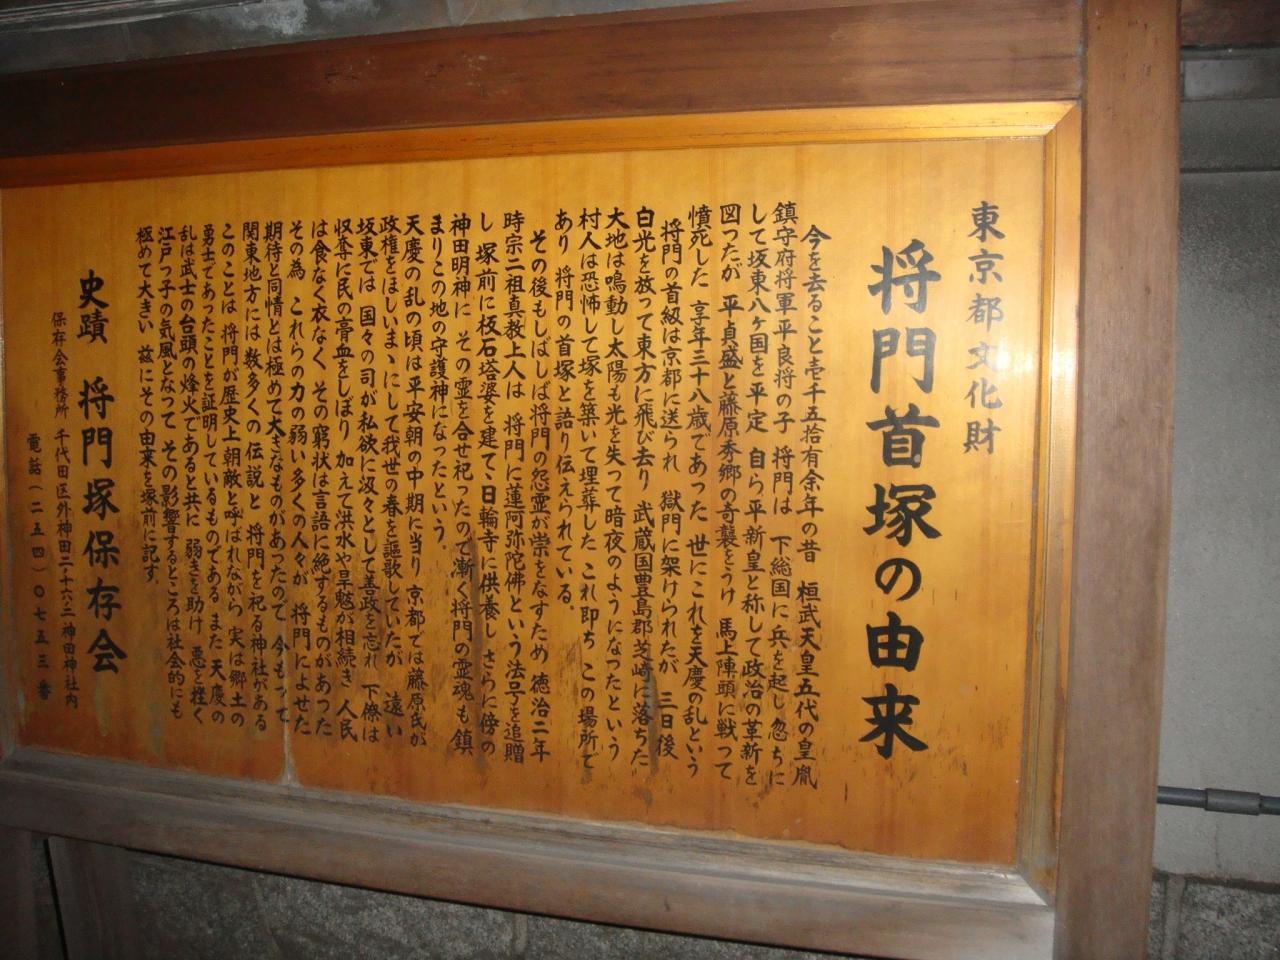 東京都文化財
将門首塚の由来
今を去ること壱千五拾有余年の昔 桓武天皇五代の皇胤
鎮守府将軍平良将の子 将門は 下総国に兵を起し忽ちに
して坂東八ヶ国を平定 自ら平新皇と称して政治の革新を
図ったが 平貞盛と藤原秀郷の奇襲をうけ 馬上陣頭に戦って
憤死した 享年三十八歳であった 世にこれを天慶の乱という
将門の首級は京都に送られ 獄門に架けられたが 三日後
白光を放って東方に飛び去り 武蔵国豊島郡芝崎に落ちた
大地は鳴動し太陽も光を失って暗夜のようになったという
村人は恐怖して塚を築いて埋葬した これ即ち この場所で
あり 将門の首塚と語り伝えられている。
その後もしばしば将門の怨霊が祟をなすため 徳治二年
時宗二祖真教上人は 将門に蓮阿弥陀佛という法号を追贈
し 塚前に板石塔婆を建て、日輪寺に供養し さらに傍の
神田明神に その霊を合せ祀ったので漸く将門の霊魂も鎮
まりこの地の守護神になったという。
天慶の乱の頃は平安朝の中期に当り 京都では藤原氏が
政権をほしいまゝにして我世の春を謳歌していたが 遠い
坂東では 国々の司が私欲に汲々として善政を忘れ 下僚は
収奪に民の膏血をしぼり 加えて洪水や旱魃が相続き 人民
は食なく衣なく その窮状は言語に絶するものがあった
その為 これらの力の弱い多くの人々が 将門によせた
期待と同情とは極めて大きなものがあったので 今もって
関東地方には 数多くの伝説と 将門を祀る神社がある
このことは 将門が歴史上朝敵と呼ばれながら 実は郷土の
勇士であったことを証明しているものである また 天慶の
乱は武士の台頭の烽火であると共に 弱きを助け 悪を挫く
江戸っ子の気風となって その影響するところは社会的にも
極めて大きい 茲にその由来を塚前に記す。
史蹟 将門塚保存会
保存会事務所 千代田区外神田二十六ノ二 神田神社内
電話(二五四)〇七五三番